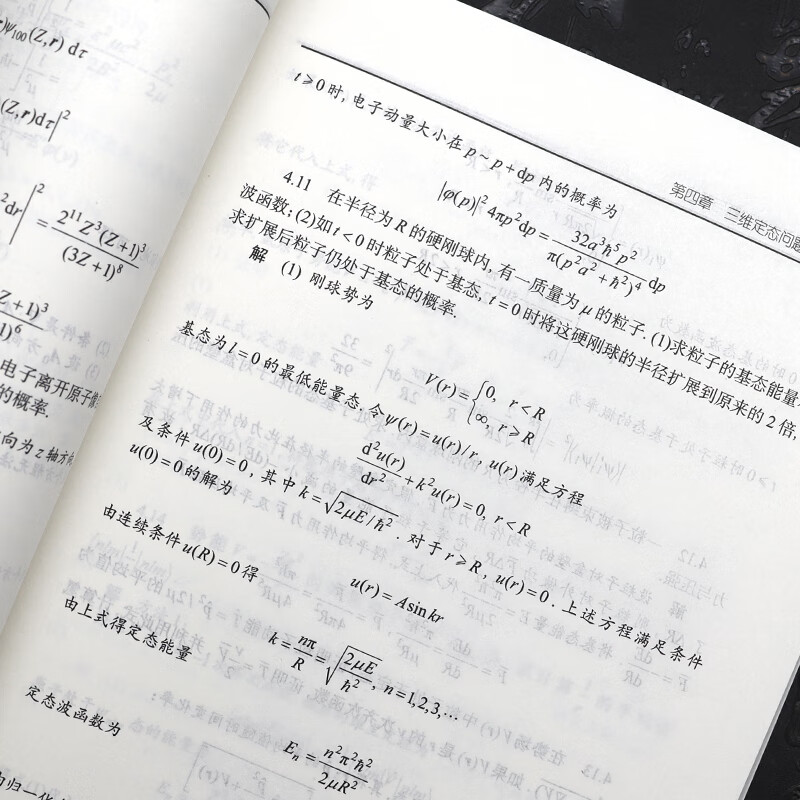 ψ₁₀₀(Z,r) dτ
(Z,r)dτ|²
²dr|² = 2¹¹Z³(Z+1)³/(3Z+1)⁸
Z+1)³
1)⁶
电子离开原子
的概率.
向为z轴方向
第四章 三维定态问题
t≥0时,电子动量大小在p~p+dp内的概率为
|φ(p)|²4πp²dp=32a³ħ⁵p²/π(p²a²+ħ²)⁴ dp
4.11 在半径为R的硬刚球内,有一质量为μ的粒子.(1)求粒子的基态能量
波函数;(2)如t<0时粒子处于基态,t=0时将这硬刚球的半径扩展到原来的2倍,
求扩展后粒子仍处于基态的概率.
解 (1) 刚球势为
V(r)={0, r<R
∞, r≥R
基态为l=0的最低能量态.令ψ(r)=u(r)/r,u(r)满足方程
d²u(r)/dr²+k²u(r)=0, r<R
及条件u(0)=0,其中k=√(2μE/ħ²).对于r≥R,u(r)=0.上述方程满足条件
u(0)=0的解为
u(r)=Asinkr
由连续条件u(R)=0得
k=nπ/R=√(2μE/ħ²), n=1,2,3,…
由上式得定态能量
Eₙ=n²π²ħ²/2μR²
定态波函数为